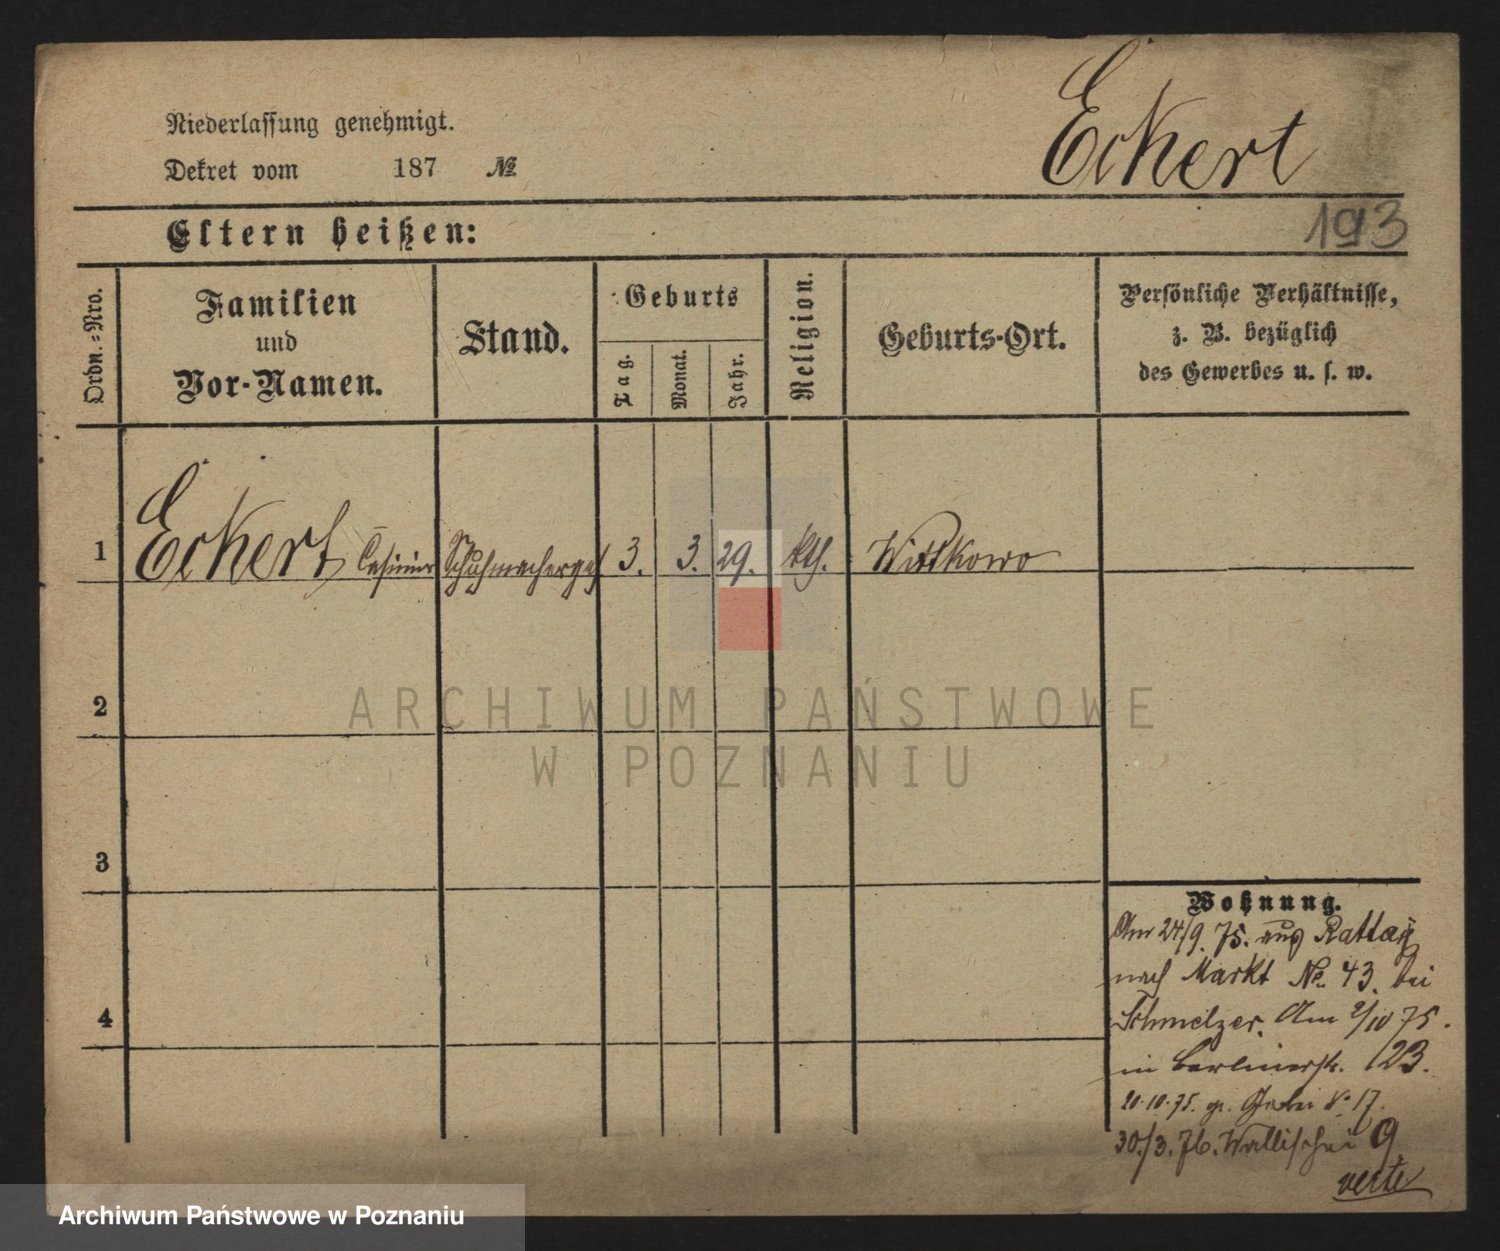 Eckert
Niederlassung genehmigt.
Dekret vom 187 №
193
Eltern heißen:
Ordn.-Nro.
Familien
und
Vor-Namen.
Stand.
Geburts
Tag.
Monat.
Jahr.
Religion.
Geburts-Ort.
Persönliche Verhältnisse,
z. B. bezüglich
des Gewerbes u. s. w.
1 Eckert Casimir Schuhmacherges 3. 3. 29. kth. Wittkowo
2
3
4
Wohnung.
Am 24/9. 75. aus Rattay
nach Markt No. 43. bei
Schmelzer. Am 2/10 75.
in Berlinerstr. 123.
20.10.75. gr. Gerber No 17.
30./3. 76. Wallischei 9
verte
ARCHIWUM PAŃSTWOWE
W POZNANIU
Archiwum Państwowe w Poznaniu